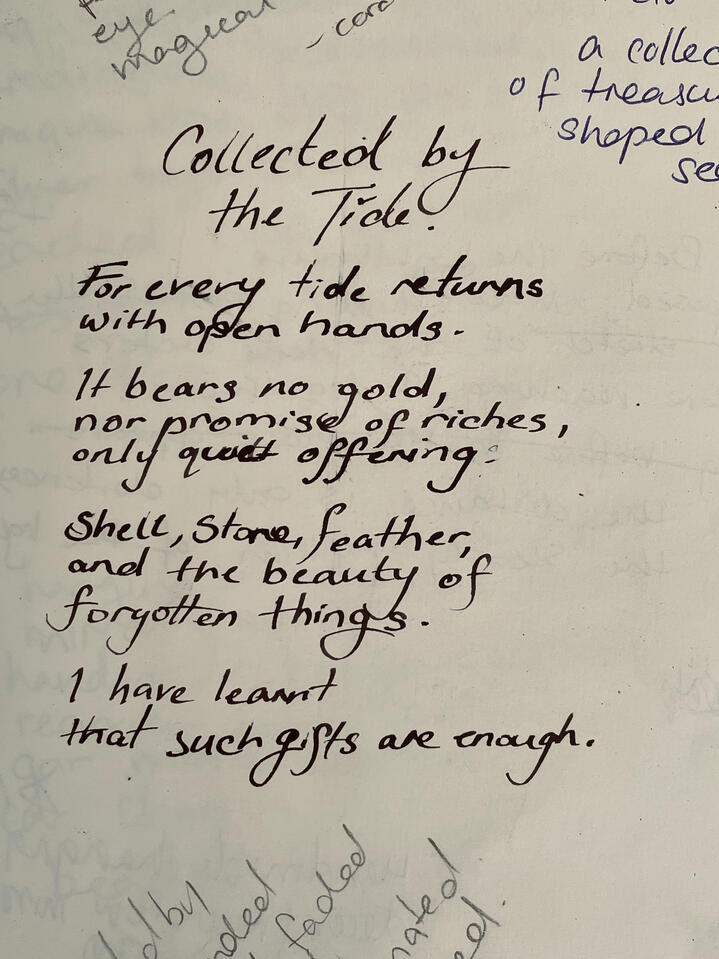 eye
magical
a collec
of treasu
shaped
se
Collected by
the Tide.
For every tide returns
with open hands.
It bears no gold,
nor promise of riches,
only quiet offering:
Shell, Stone, feather,
and the beauty of
forgotten things.
I have learnt
that such gifts are enough.
d by
nded
faded
nated
ed.